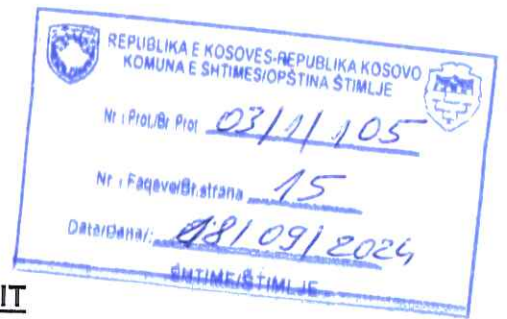 REPUBLIKA E KOSOVËS-REPUBLIKA KOSOVO
KOMUNA E SHTIMES/OPŠTINA ŠTIMLJE
Nr : Prot./Br Prot 03/1/105
Nr : Faqeve/Br.strana 15
Data/Dana/: 18/09/2024
SHTIME/ŠTIMLJE
IT